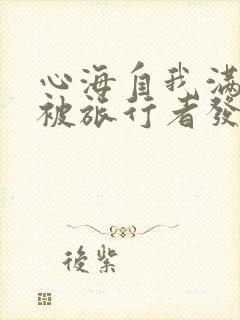 心海自我滿
被旅行者發
後紫